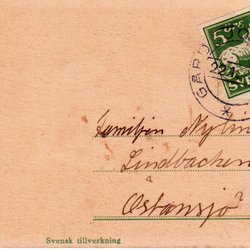 5
GÄRD
22.1
Familjen Nylin
Lindbacken
a
Östansjö
Svensk tillverkning